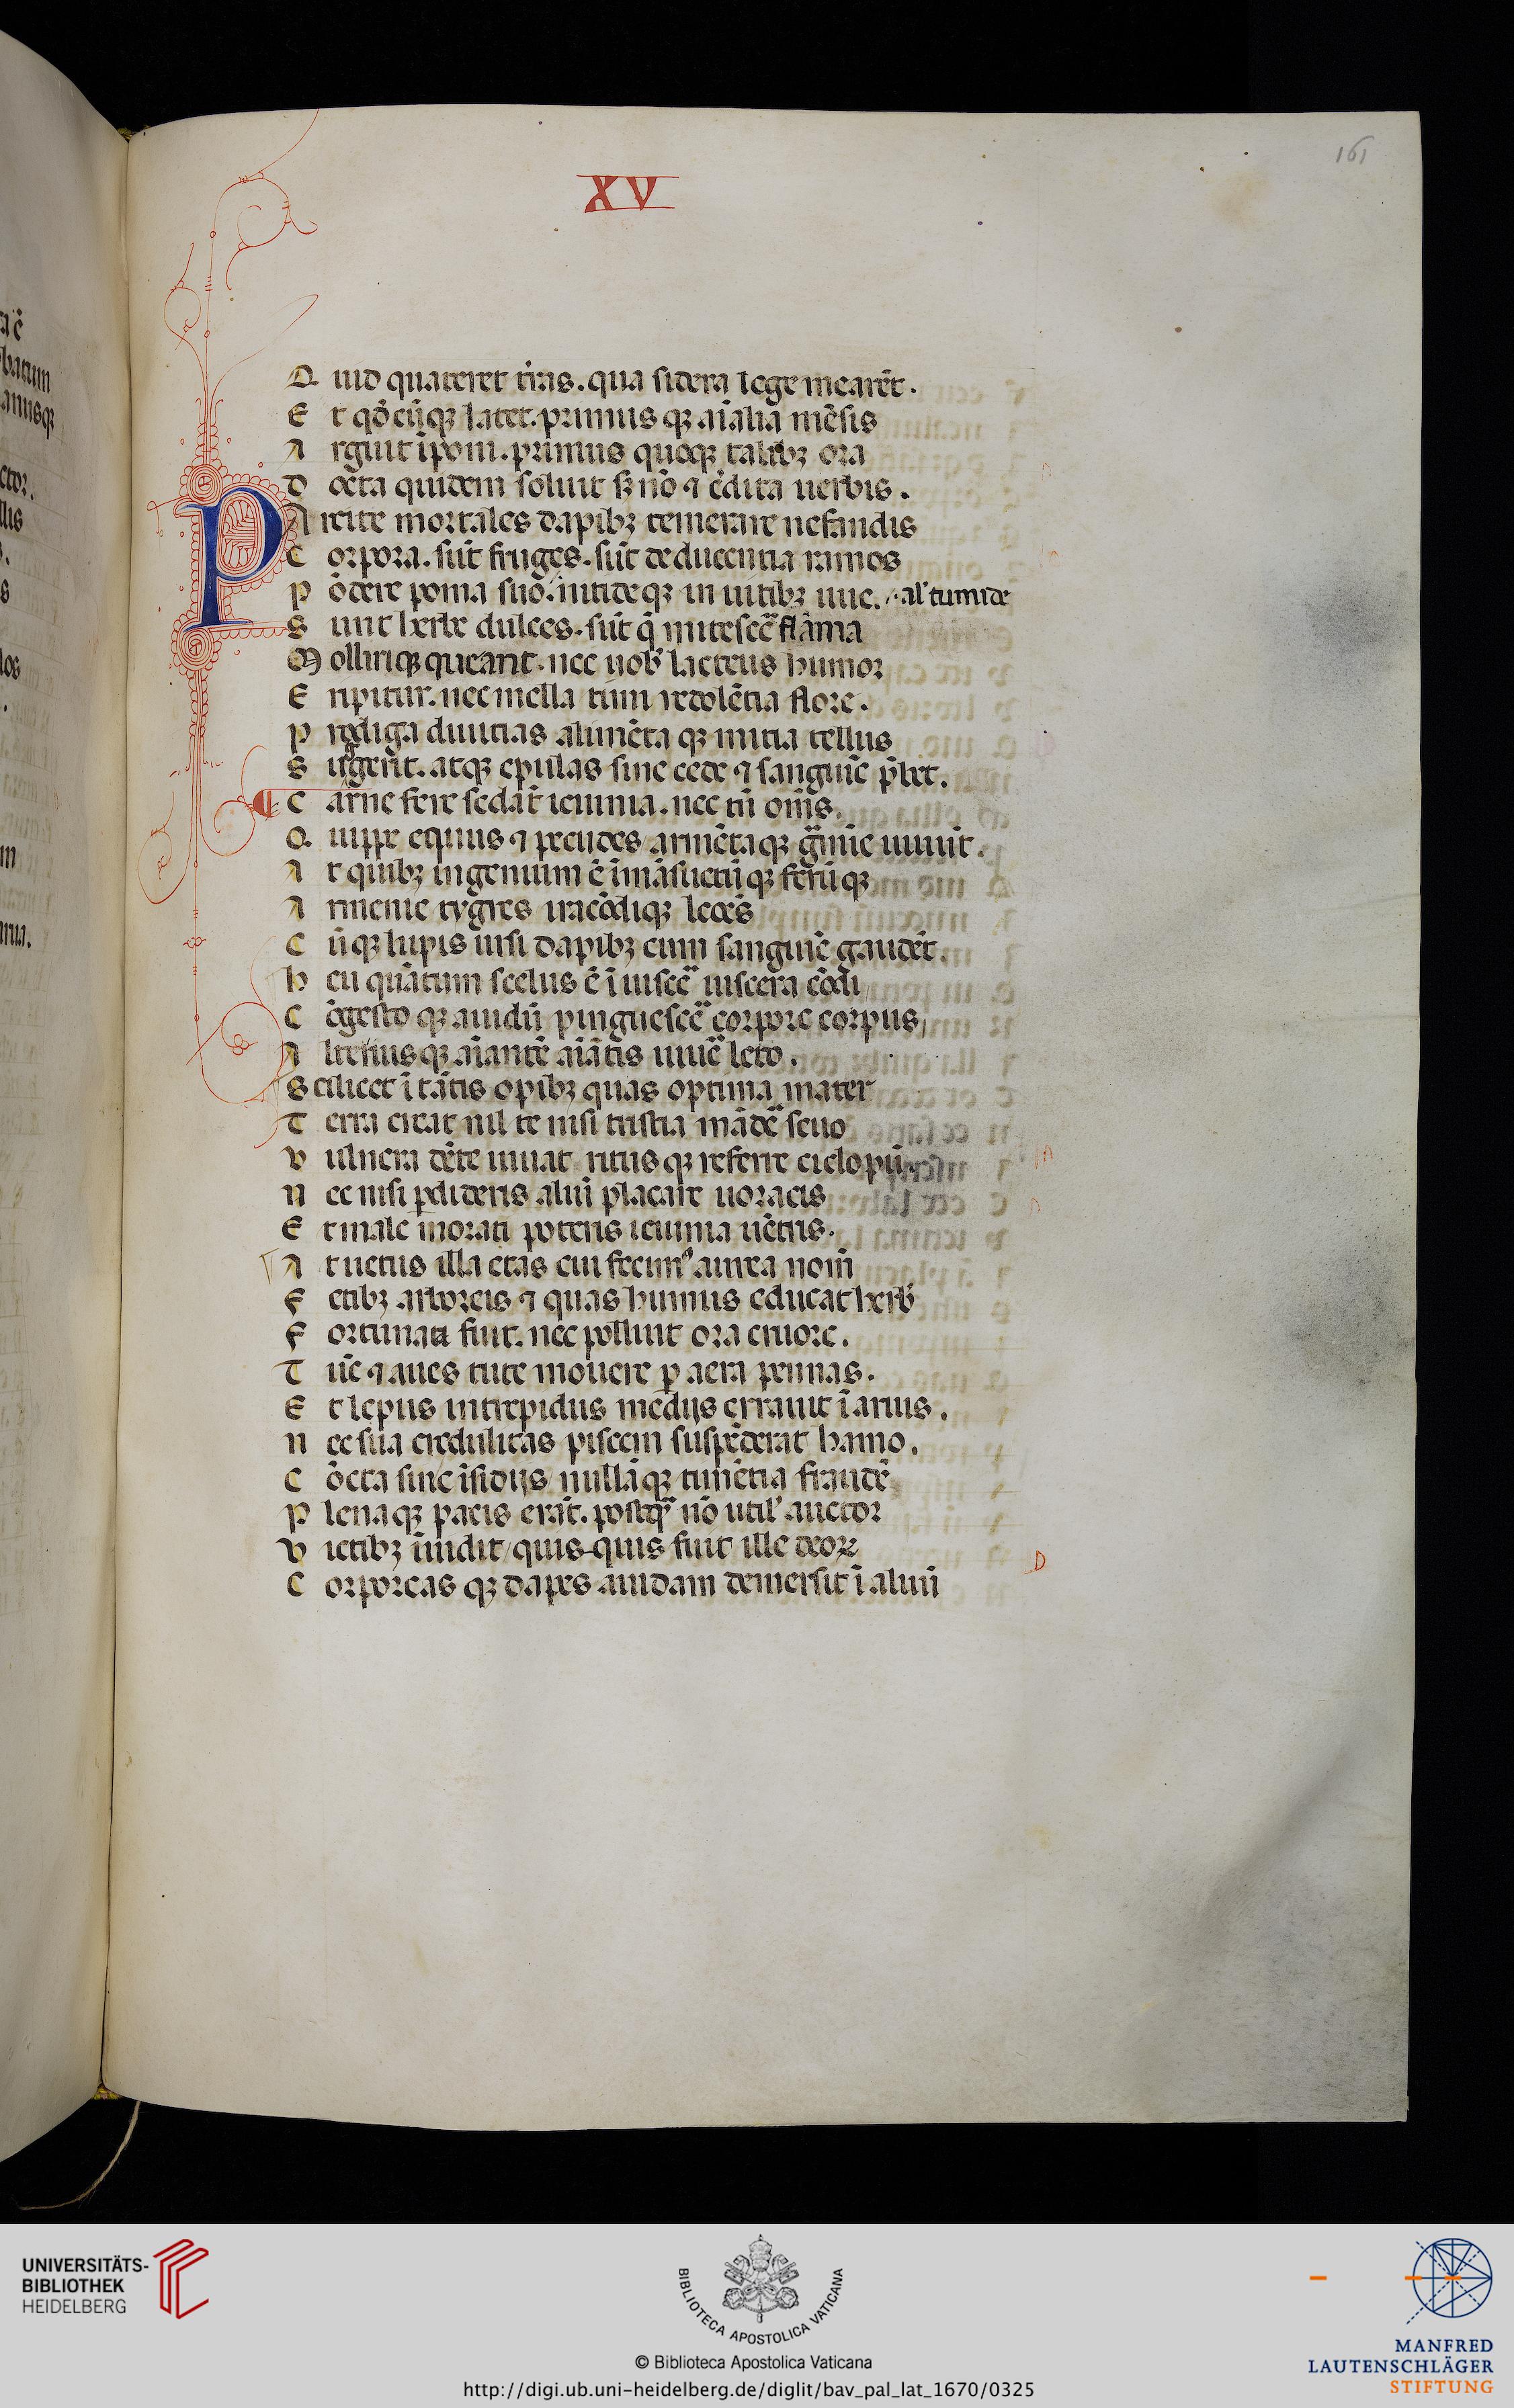 161
XV
Q uid quateret t̄ras. qua sidera lege mearēt.
E t qd̄cūq; latet. primus q; aīalia mēsis
A rguit īponi. primus quoq; talib; ora
D octa quidem soluit s; nō ⁊ c̄dita uerbis.
PArcite mortales dapib; temerare nefandis
C orpora. sūt fruges. sūt deducentia ramos
P ōdere poma suo. nitideq; in uitib; uue. al' tumide
S unt herbe dulces. sūt q̄ mitescē flāma
M ollirique queant. nec uob' lacteus humor
E ripitur. nec mella timi redolētia flore.
P rodiga diuitias alimēta q; mitia tellus
S uggerit. atq; epulas sine cede ⁊ sanguīe p̄bet.
C arne fere sedāt ieiunia. nec tn̄ oms.
Q uippe equus ⁊ pecudes armētaq; gͣmīe uiuūt.
A t quib; ingenium ē īmāsuetūq; ferūq;
A rmenie tygres iracōdiq; leoēs
C ūq; lupis ursi dapib; cum sanguīe gaudēt.
H eu quātum scelus ē ī uiscē uiscera cōdi
C ōgestoq; auidū pinguescē corpore corpus
A lteriusq; aīantē aīātis uiuē leto.
S cilicet ī tātis opib; quas optima mater
T erra creat nil te nisi tristia mādē seuo
V ulnera dēte iuuat ritus q; referre ciclopū
N ec nisi pdideris aliū placare uoracis
E t male morati poteris ieiunia uētris.
A t uetus illa etas cui fecim' aurea nom̄
F etib; arboreis ⁊ quas humus educat herb'
F ortunata fuit. nec polluit ora cruore.
T ūc ⁊ aues tute mouere p aera pennas.
E t lepus intrepidus medijs errauit ī aruis.
N ec sua credulitas piscem suspēderat hamo.
C ōcta sine īsidijs nullāq; timētia fraudē
P lenaq; pacis erāt. postqͣ nō util' auctor
V ictib; īuidit quis-quis fuit ille deoꝝ
C orporeas q; dapes auidam demersit ī aluū
UNIVERSITÄTS-
BIBLIOTHEK
HEIDELBERG
BIBLIOTECA APOSTOLICA VATICANA
© Biblioteca Apostolica Vaticana
http://digi.ub.uni-heidelberg.de/diglit/bav_pal_lat_1670/0325
MANFRED
LAUTENSCHLÄGER
STIFTUNG